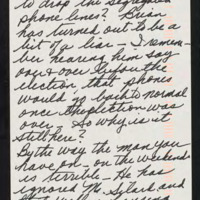 to drop the segregated
phone lines? Brian
has turned out to be a
bit of a liar — I remem-
ber hearing him say
over & over before the
election, that phones
would go back to normal
once the election was
over. So why is it
still here?
By the way the man you
have on - on the weekend
is terrible - He has
ignored Mr. and